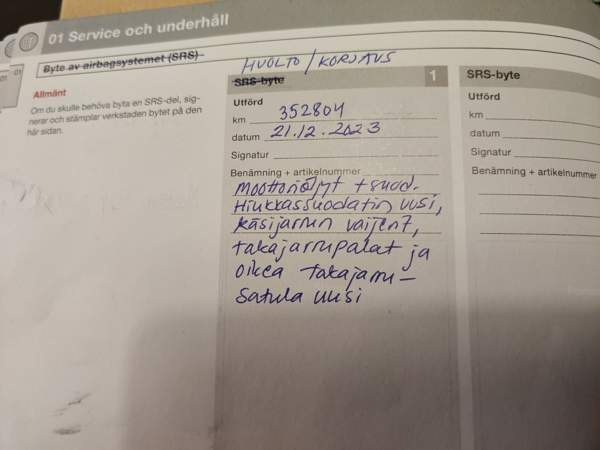 01 Service och underhåll
Byte av airbagsystemet (SRS)
Allmänt
Om du skulle behöva byta en SRS-del, sig-
nerar och stämplar verkstaden bytet på den
här sidan.
HUOLTO / KORJAUS
SRS-byte 1
Utförd
km 352804
datum 21.12.2023
Signatur
Benämning + artikelnummer
Moottoriöljyt + suod.
Hiukkassuodatin uusi,
käsijarrun vaijerit,
takajarrupalat ja
oikea takajarru-
satula uusi
SRS-byte
Utförd
km
datum
Signatur
Benämning + artikelnummer